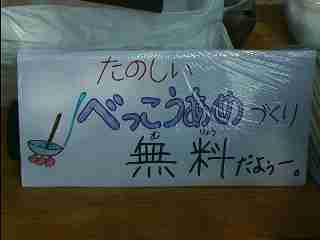 たのしい
べっこうあめづくり
無料だよぅー。
むりょう